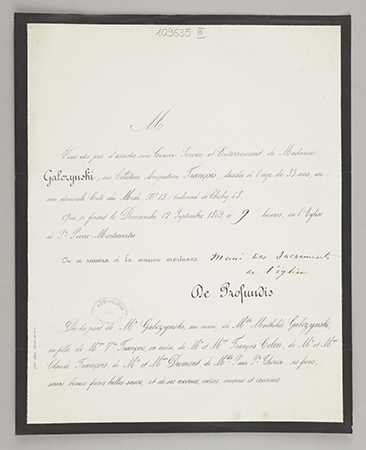 109635 III
M
Vous êtes prié d'assister aux Convoi Service et Enterrement de Madame
Galczynski, née Célestine Augustine François, décédée à l'âge de 33 ans, en
son domicile Cité du Midi N° 13, boulevard de Clichy
Qui se feront le Dimanche 12 Septembre 1869, à 9 heures, en l'Eglise
de St Pierre Montmartre.
On se réunira à la maison mortuaire Muni des Sacrements
de l'église
De Profundis
De la part de Mr Galczynski, son mari, de Melle Mathilde Galczynski,
sa fille, de Mme Vve François, sa mère, de Mr et Mme François Colon, de Mr et Mme
François, de Mr et Mme Dumont, de ses frères,
sœurs, beaux frères belles sœurs, et de ses neveux, nièces, cousins et cousines.